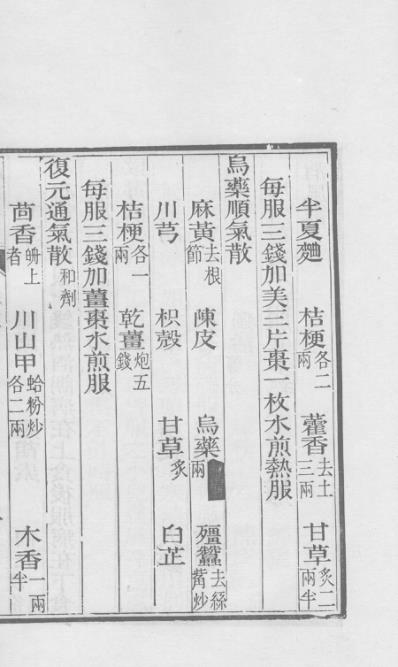 半夏麯 桔梗各二兩 藿香去土三兩 甘草炙二兩半
每服三錢加美三片棗一枚水煎熱服
烏藥順氣散
麻黃去根節 陳皮 烏藥兩 殭蠶去絲觜炒
川芎 枳殼 甘草炙 白芷
桔梗各一兩 乾薑炮五錢
每服三錢加薑棗水煎服
復元通氣散和劑
茴香舶上者 川山甲蛤粉炒各二兩 木香一兩半